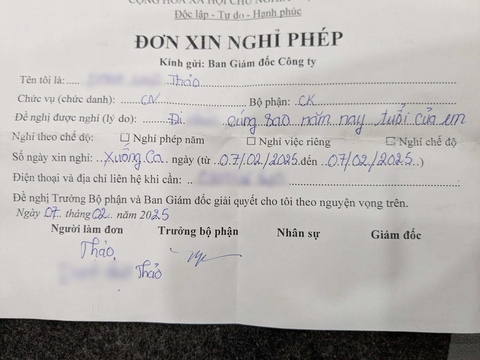 CỘNG HÒA XÃ HỘI CHỦ NGHĨA
Độc lập - Tự do - Hạnh phúc
ĐƠN XIN NGHỈ PHÉP
Kính gửi: Ban Giám đốc Công ty
Tên tôi là: Thảo
Chức vụ (chức danh): CN Bộ phận: CK
Đề nghị được nghỉ (lý do): Đi cúng sao năm nay tuổi của em
Nghỉ theo chế độ: ☐ Nghỉ phép năm ☐ Nghỉ việc riêng ☐ Nghỉ chế độ
Số ngày xin nghỉ: Xuống Ca. ngày (từ 07/02/2025 đến 07/02/2025)
Điện thoại và địa chỉ liên hệ khi cần:
Đề nghị Trưởng Bộ phận và Ban Giám đốc giải quyết cho tôi theo nguyện vọng trên.
Ngày 07 tháng 02 năm 2025
Người làm đơn Trưởng bộ phận Nhân sự Giám đốc
Thảo
Thảo